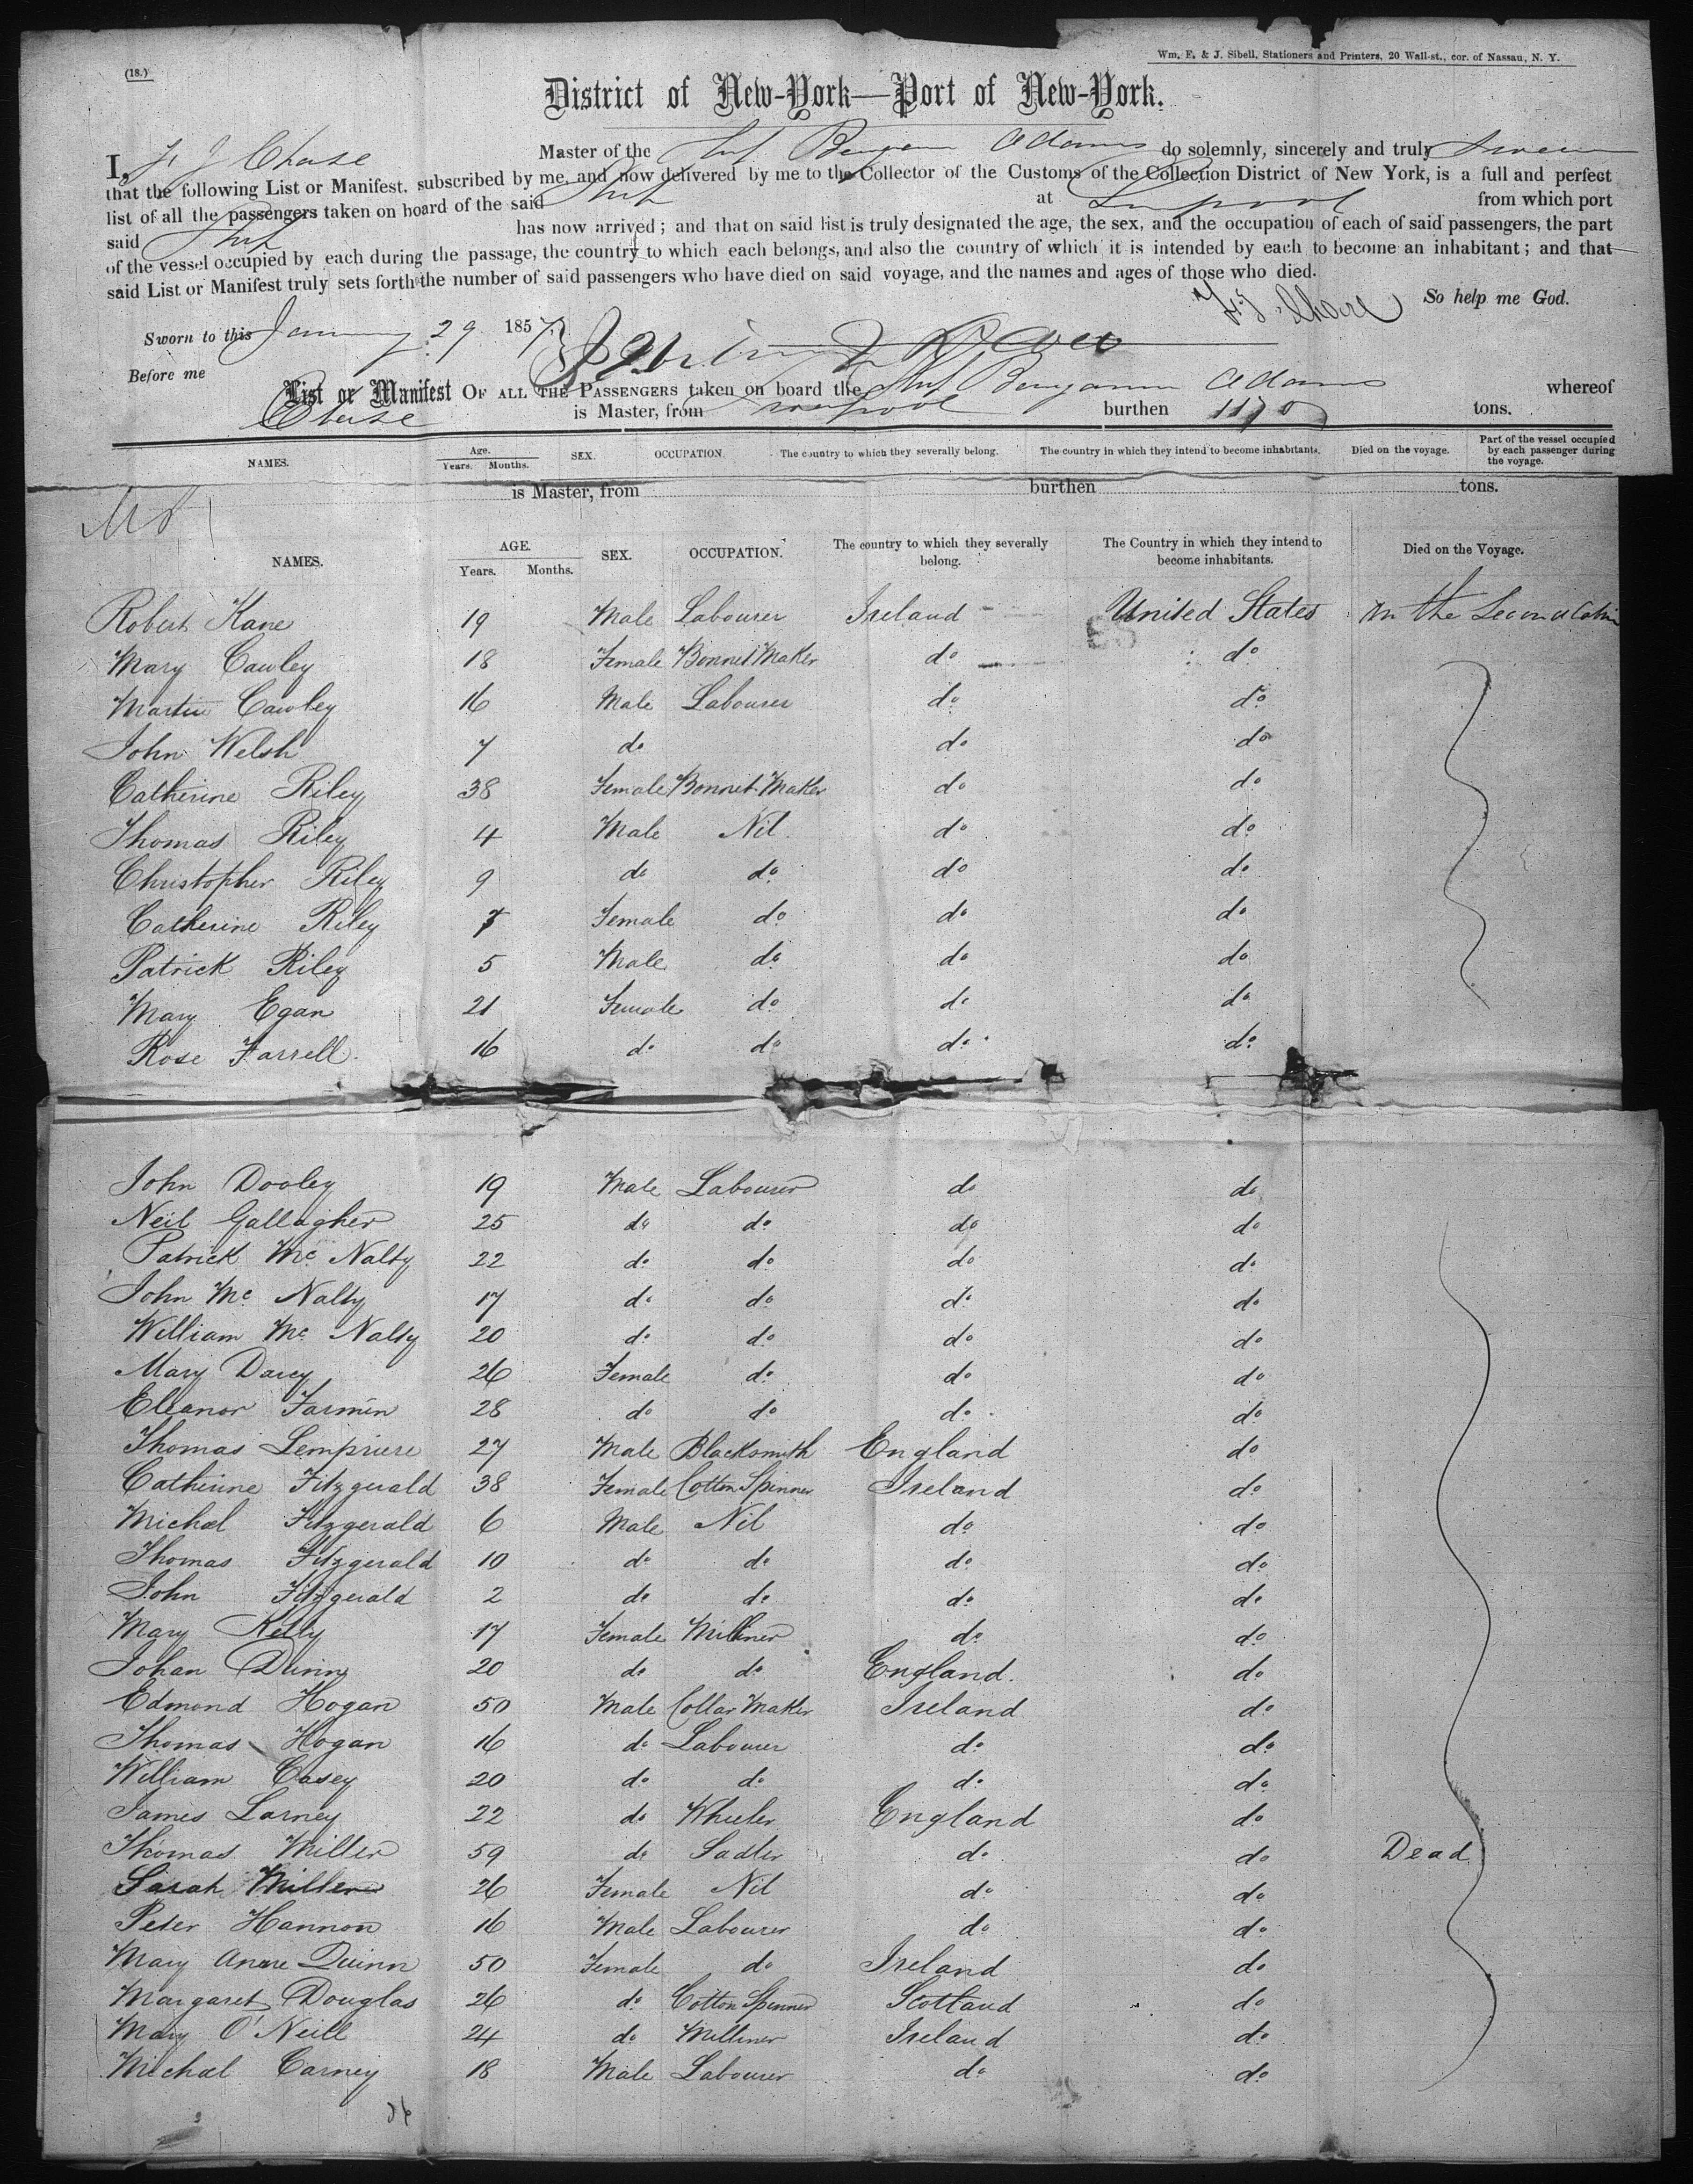 (18.)
Wm. E. & J. Sibell, Stationers and Printers, 20 Wall-st., cor. of Nassau, N. Y.
District of New-York—Port of New-York.
I, F J Chase Master of the Ship Benjamin Adams do solemnly, sincerely and truly swear
that the following List or Manifest, subscribed by me, and now delivered by me to the Collector of the Customs of the Collection District of New York, is a full and perfect
list of all the passengers taken on board of the said Ship at Liverpool from which port
said Ship has now arrived; and that on said list is truly designated the age, the sex, and the occupation of each of said passengers, the part
of the vessel occupied by each during the passage, the country to which each belongs, and also the country of which it is intended by each to become an inhabitant; and that
said List or Manifest truly sets forth the number of said passengers who have died on said voyage, and the names and ages of those who died.
So help me God.
Sworn to this January 29 1857, F. J. Chase
Before me
List or Manifest OF ALL THE PASSENGERS taken on board the Ship Benjamin Adams whereof
Chase is Master, from Liverpool burthen 1170 tons.
NAMES. Age. Years. Months. SEX. OCCUPATION. The country to which they severally belong. The country in which they intend to become inhabitants. Died on the voyage. Part of the vessel occupied by each passenger during the voyage.
is Master, from burthen tons.
NAMES. AGE. Years. Months. SEX. OCCUPATION. The country to which they severally belong. The Country in which they intend to become inhabitants. Died on the Voyage.
Robert Kane 19 Male Labourer Ireland United States In the Second Cabin
Mary Cawley 18 Female Bonnet Maker do do
Martin Cawley 16 Male Labourer do do
John Welsh 7 do do do
Catherine Riley 38 Female Bonnet Maker do do
Thomas Riley 4 Male Nil do do
Christopher Riley 9 do do do do
Catherine Riley 7 Female do do do
Patrick Riley 5 Male do do do
Mary Egan 21 Female do do do
Rose Farrell 16 do do do do
John Dooley 19 Male Labourer do do
Neil Gallagher 25 do do do do
Patrick Mc Nalty 22 do do do do
John Mc Nalty 17 do do do do
William Mc Nalty 20 do do do do
Mary Darcy 26 Female do do do
Eleanor Farmin 28 do do do do
Thomas Lempriere 27 Male Blacksmith England do
Catherine Fitzgerald 38 Female Cotton Spinner Ireland do
Michal Fitzgerald 6 Male Nil do do
Thomas Fitzgerald 10 do do do do
John Fitzgerald 2 do do do do
Mary Kelly 17 Female Milliner do do
Johan Dunn 20 do do England. do
Edmond Hogan 50 Male Collar Maker Ireland do
Thomas Hogan 16 do Labourer do do
William Casey 20 do do do do
James Larney 22 do Wheeler England do
Thomas Miller 59 do Sadler do do Dead
Sarah Miller 26 Female Nil do do
Peter Hannon 16 Male Labourer do do
Mary Anne Quinn 50 Female do Ireland do
Margaret Douglas 26 do Cotton Spinner Scotland do
Mary O'Neill 24 do Milliner Ireland do
Michal Carney 18 Male Labourer do do